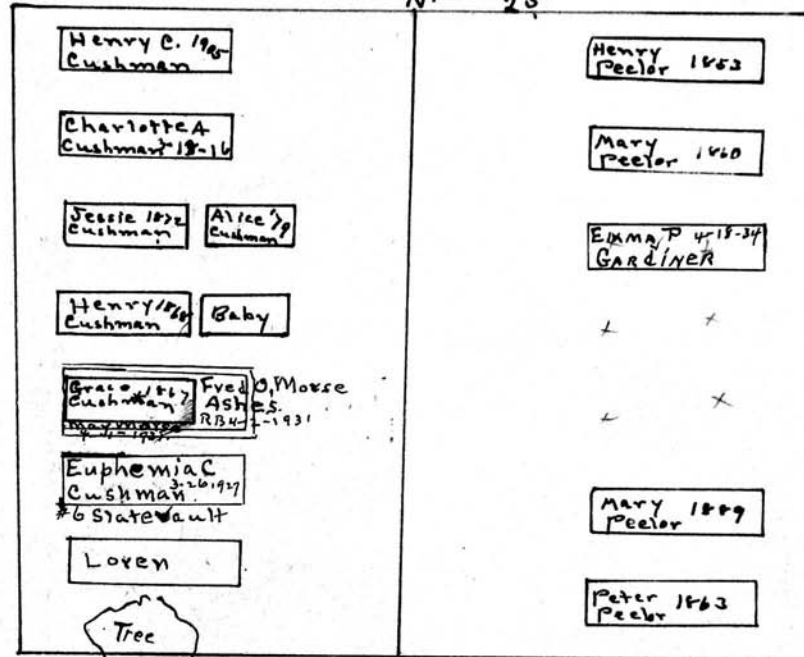 N. 25
Henry C. 1905
Cushman
Charlotte A
Cushman 18-16
Jessie 1872
Cushman
Alice '79
Cushman
Henry 1868
Cushman
Baby
Grace 1867
Cushman
Fred O. Morse
Ashes.
RB4-2-1931
Euphemia C
Cushman 3-26-1927
#6 Slate vault
Loren
Tree
Henry 1853
Peelor
Mary
Peelor 1860
Emma P 4-18-34
GARdiNER
Mary 1889
Peelor
Peter 1863
Peelor